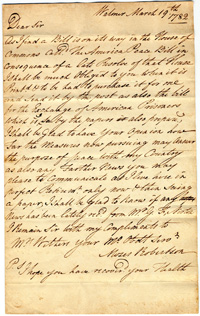 Walmer, March 19th
1782
Dear Sir
As I find a Bill is on its way in the House of
Commons call'd The America Peace Bill in
Consequence of a late Resolve of that House
I shall be much Obliged to you when it is
Printed & to be had to purchase it for me
and send it by the post as also the bill
for the Exchange of American Prisoners
which I see by the papers is also
I shall be glad to have your Opinion how
far the Measures now pursuing may answer
the purpose of Peace with Any Country
as also any farther News you may
please to Communicate as I live here in
perfect only now & then seeing
a paper, I shall be glad to know if any
News has been lately rec'd from Mr
I remain Sir with my Compliments to
Mrs Your Mo Obt Serv
Moses Robertson
I hope you have recover'd your Health